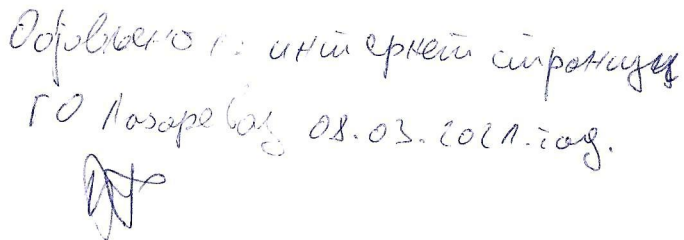 Објављено на интернет страници
ГО Лазаревац 08.03.2021. год.